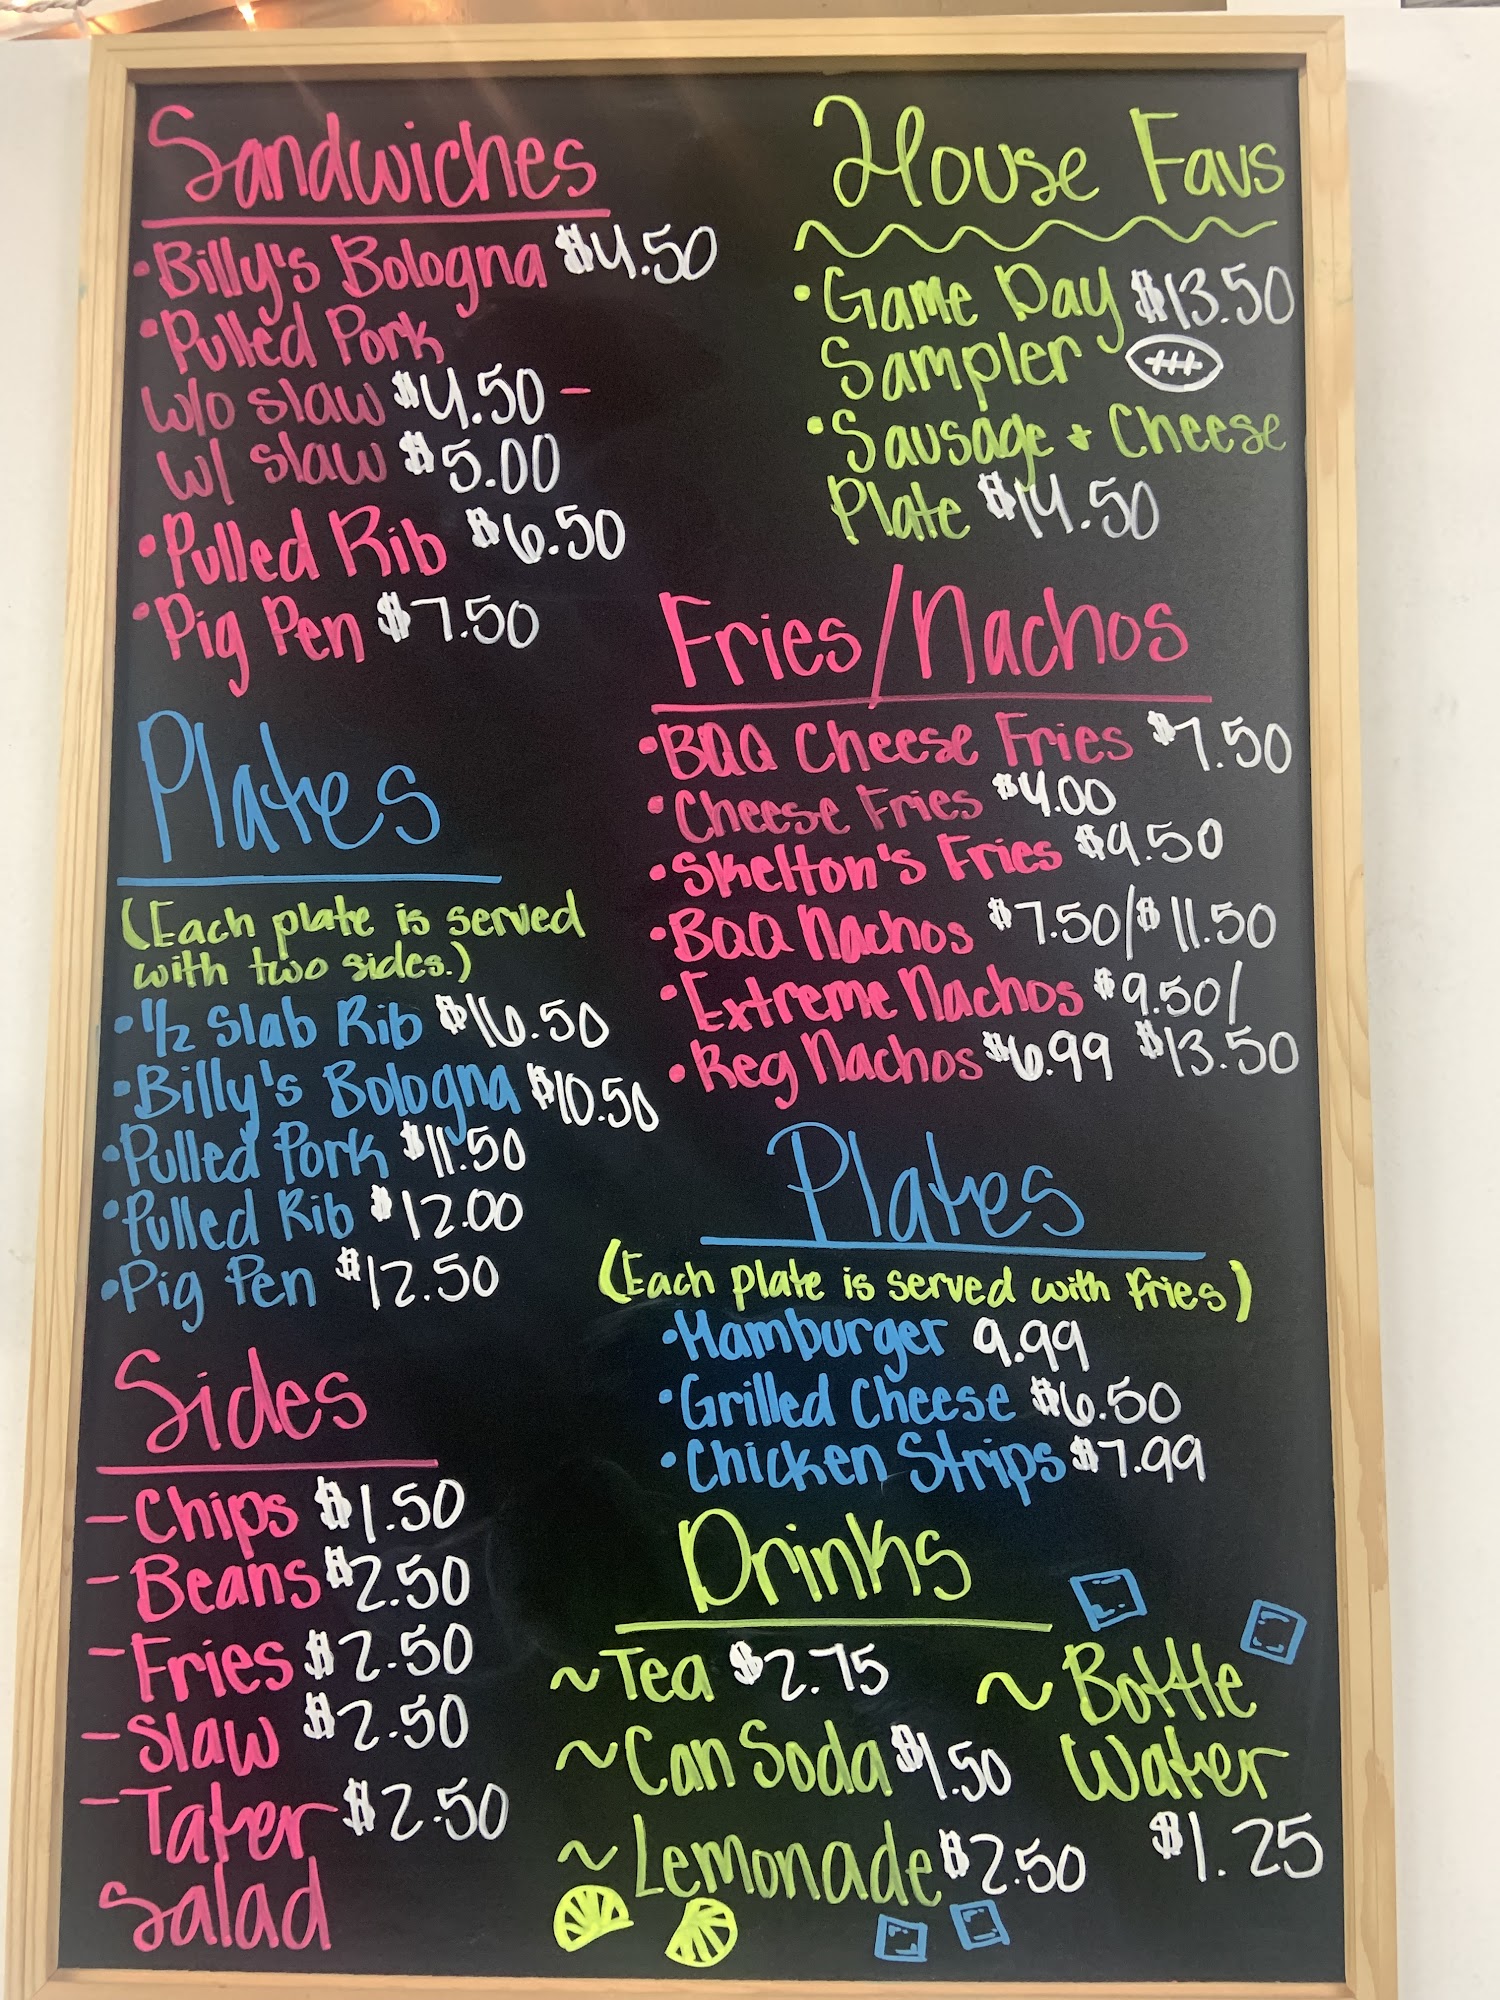 Sandwiches
•Billy's Bologna $4.50
•Pulled Pork
w/o slaw $4.50 -
w/ slaw $5.00
•Pulled Rib $6.50
•Pig Pen $7.50
Plates
(Each plate is served
with two sides.)
•1/2 Slab Rib $16.50
•Billy's Bologna $10.50
•Pulled Pork $11.50
•Pulled Rib $12.00
•Pig Pen $12.50
Sides
-Chips $1.50
-Beans $2.50
-Fries $2.50
-Slaw $2.50
-Tater $2.50
Salad
House Favs
•Game Day $13.50
Sampler
•Sausage + Cheese
Plate $14.50
Fries/Nachos
•BQQ Cheese Fries $7.50
•Cheese Fries $4.00
•Skelton's Fries $9.50
•BQQ Nachos $7.50/$11.50
•Extreme Nachos $9.50/
•Reg Nachos $6.99 $13.50
Plates
(Each plate is served with fries)
•Hamburger 9.99
•Grilled Cheese $6.50
•Chicken Strips $7.99
Drinks
~Tea $2.75
~Can Soda $1.50
~Lemonade $2.50
~Bottle
Water
$1.25